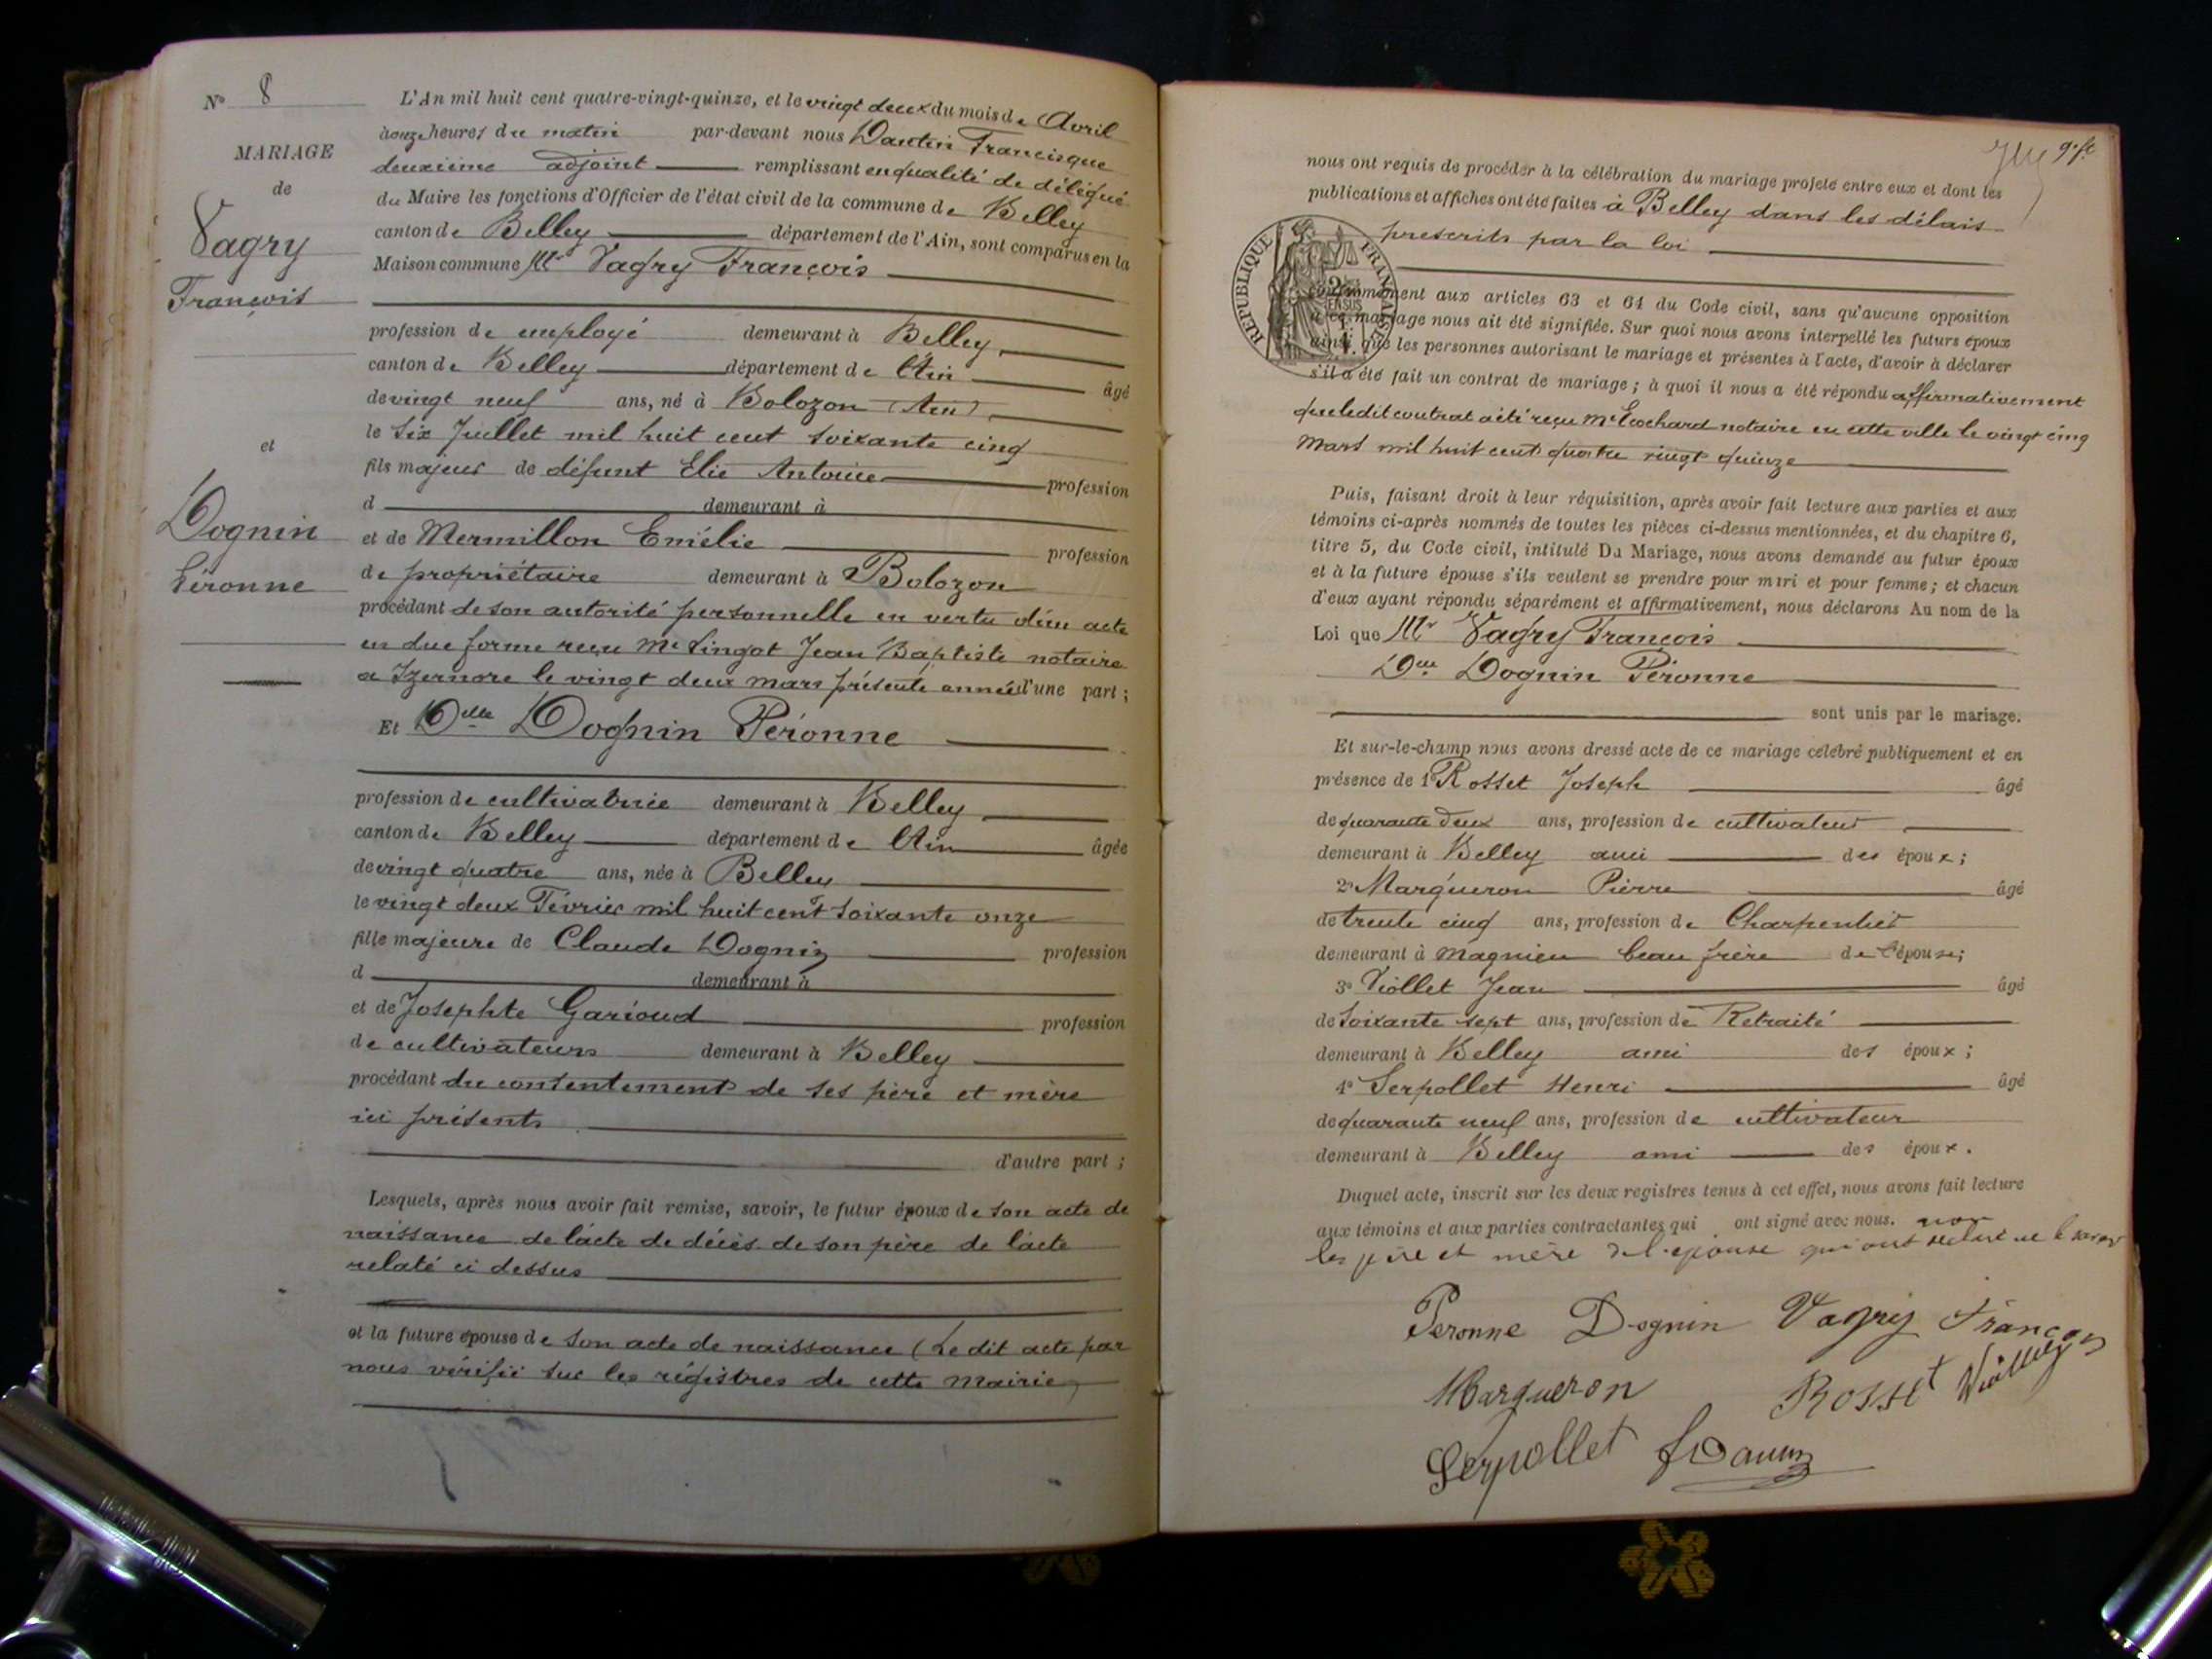 N° 8
MARIAGE
de
Vagry
François
et
Dognin
Péronne
L'An mil huit cent quatre-vingt-quinze, et le vingt deux du mois de Avril
à onze heures du matin par-devant nous Dantin Francisque
deuxième adjoint remplissant en qualité de délégué
du Maire les fonctions d'Officier de l'état civil de la commune de Belley
canton de Belley département de l'Ain, sont comparus en la
Maison commune Mr Vagry François
profession de employé demeurant à Belley,
canton de Belley département de l'Ain âgé
de vingt neuf ans, né à Bolozon (Ain)
le six Juillet mil huit cent soixante cinq
fils majeur de défunt Elie Antoine profession
d demeurant à
et de Mermillon Emélie profession
de propriétaire demeurant à Bolozon
procédant de son autorité personnelle en vertu d'un acte
en due forme reçu Me Lingot Jean Baptiste notaire
a Izernore le vingt deux mars présente année d'une part ;
Et Delle Dognin Péronne
profession de cultivatrice demeurant à Belley
canton de Belley département de l'Ain âgée
de vingt quatre ans, née à Belley
le vingt deux Février mil huit cent soixante onze
fille majeure de Claude Dognin profession
d demeurant à
et de Josephte Garioud profession
de cultivateurs demeurant à Belley
procédant du consentement de ses père et mère
ici présents
d'autre part ;
Lesquels, après nous avoir fait remise, savoir, le futur époux de son acte de
naissance de l'acte de décès de son père de l'acte
relaté ci dessus
et la future épouse de son acte de naissance (Le dit acte par
nous vérifié sur les régistres de cette mairie)
9e ft
nous ont requis de procéder à la célébration du mariage projeté entre eux et dont les
publications et affiches ont été faites à Belley dans les délais
prescrits par la loi
REPUBLIQUE FRANÇAISE
conformément aux articles 63 et 64 du Code civil, sans qu'aucune opposition
à ce mariage nous ait été signifiée. Sur quoi nous avons interpellé les futurs époux
ainsi que les personnes autorisant le mariage et présentes à l'acte, d'avoir à déclarer
s'il a été fait un contrat de mariage ; à quoi il nous a été répondu affirmativement
que ledit contrat a été reçu Me Lochard notaire en cette ville le vingt cinq
Mars mil huit cent quatre vingt quinze
Puis, faisant droit à leur réquisition, après avoir fait lecture aux parties et aux
témoins ci-après nommés de toutes les pièces ci-dessus mentionnées, et du chapitre 6,
titre 5, du Code civil, intitulé Du Mariage, nous avons demandé au futur époux
et à la future épouse s'ils veulent se prendre pour mari et pour femme ; et chacun
d'eux ayant répondu séparément et affirmativement, nous déclarons Au nom de la
Loi que Mr Vagry François
Delle Dognin Péronne
sont unis par le mariage.
Et sur-le-champ nous avons dressé acte de ce mariage célébré publiquement et en
présence de 1° Rosset Joseph âgé
de quarante deux ans, profession de cultivateur
demeurant à Belley ami des époux ;
2° Marqueron Pierre âgé
de trente cinq ans, profession de Charpentier
demeurant à Magnieu beau frère de l'épouse ;
3° Viollet Jean âgé
de soixante sept ans, profession de Retraité
demeurant à Belley ami des époux ;
4° Serpollet Henri âgé
de quarante neuf ans, profession de cultivateur
demeurant à Belley ami des époux.
Duquel acte, inscrit sur les deux registres tenus à cet effet, nous avons fait lecture
aux témoins et aux parties contractantes qui ont signé avec nous. non
les père et mère de l'épouse qui ont déclaré ne le savoir
Peronne Dognin Vagry François
Marqueron Rosset
Serpollet